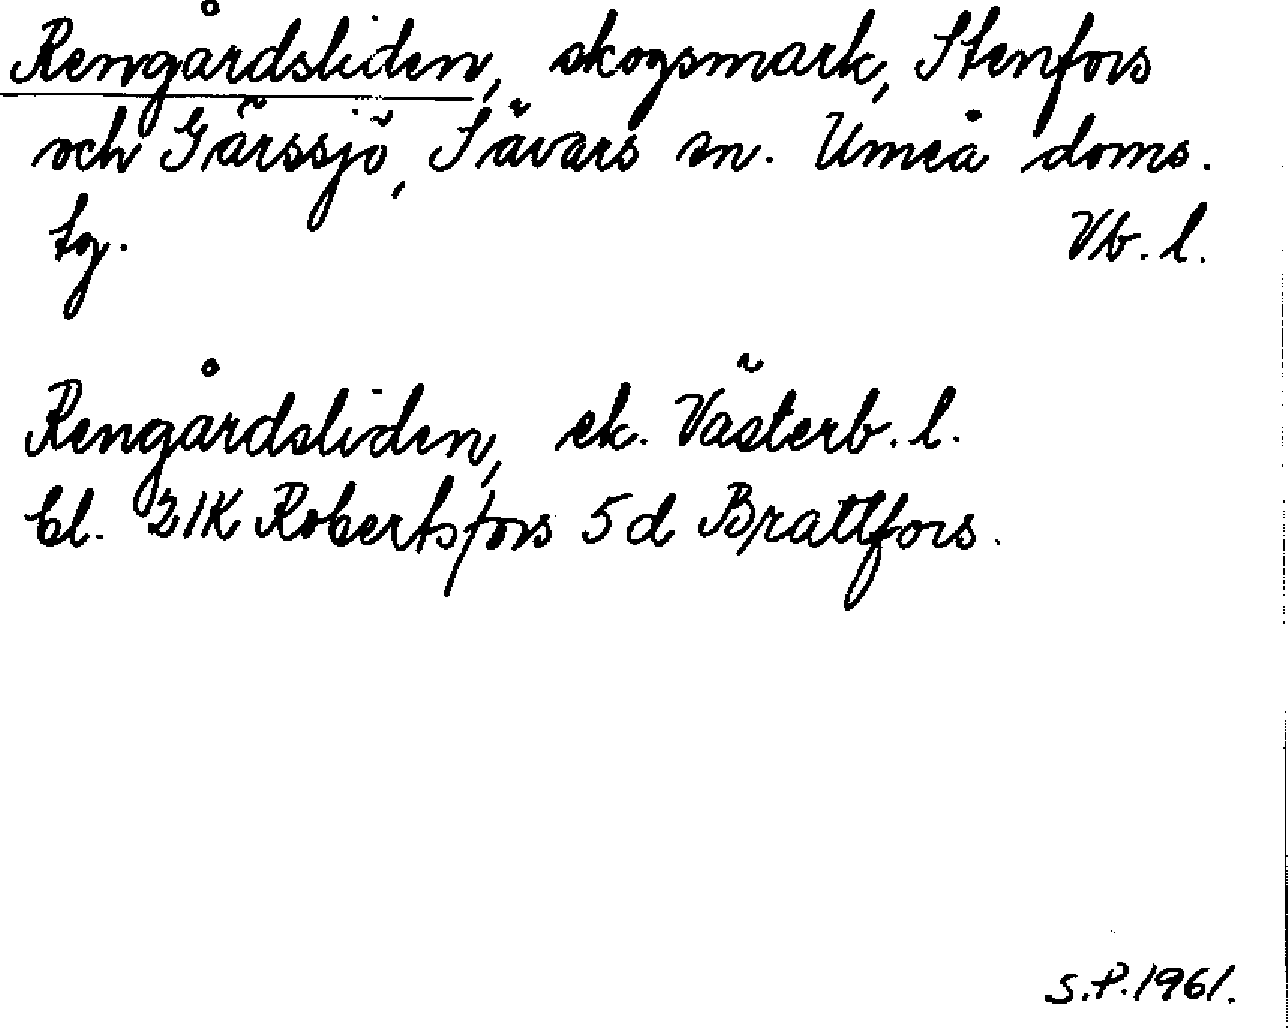 Rengårdsliden, skogsmark, Stenfors
och Gärssjö, Sävars sn. Umeå doms.
tg. Vb. l.
Rengårdsliden, ek. Västerb. l.
bl. 21K Robertsfors 5d Brattfors.
S.P. 1961.